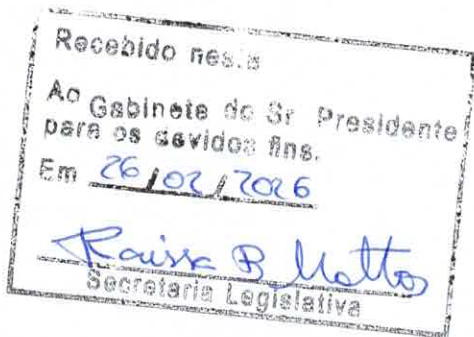 Recebido nesta
Ao Gabinete do Sr Presidente
para os devidos fins.
Em 26/02/2026
Raissa B Mattos
Secretaria Legislativa